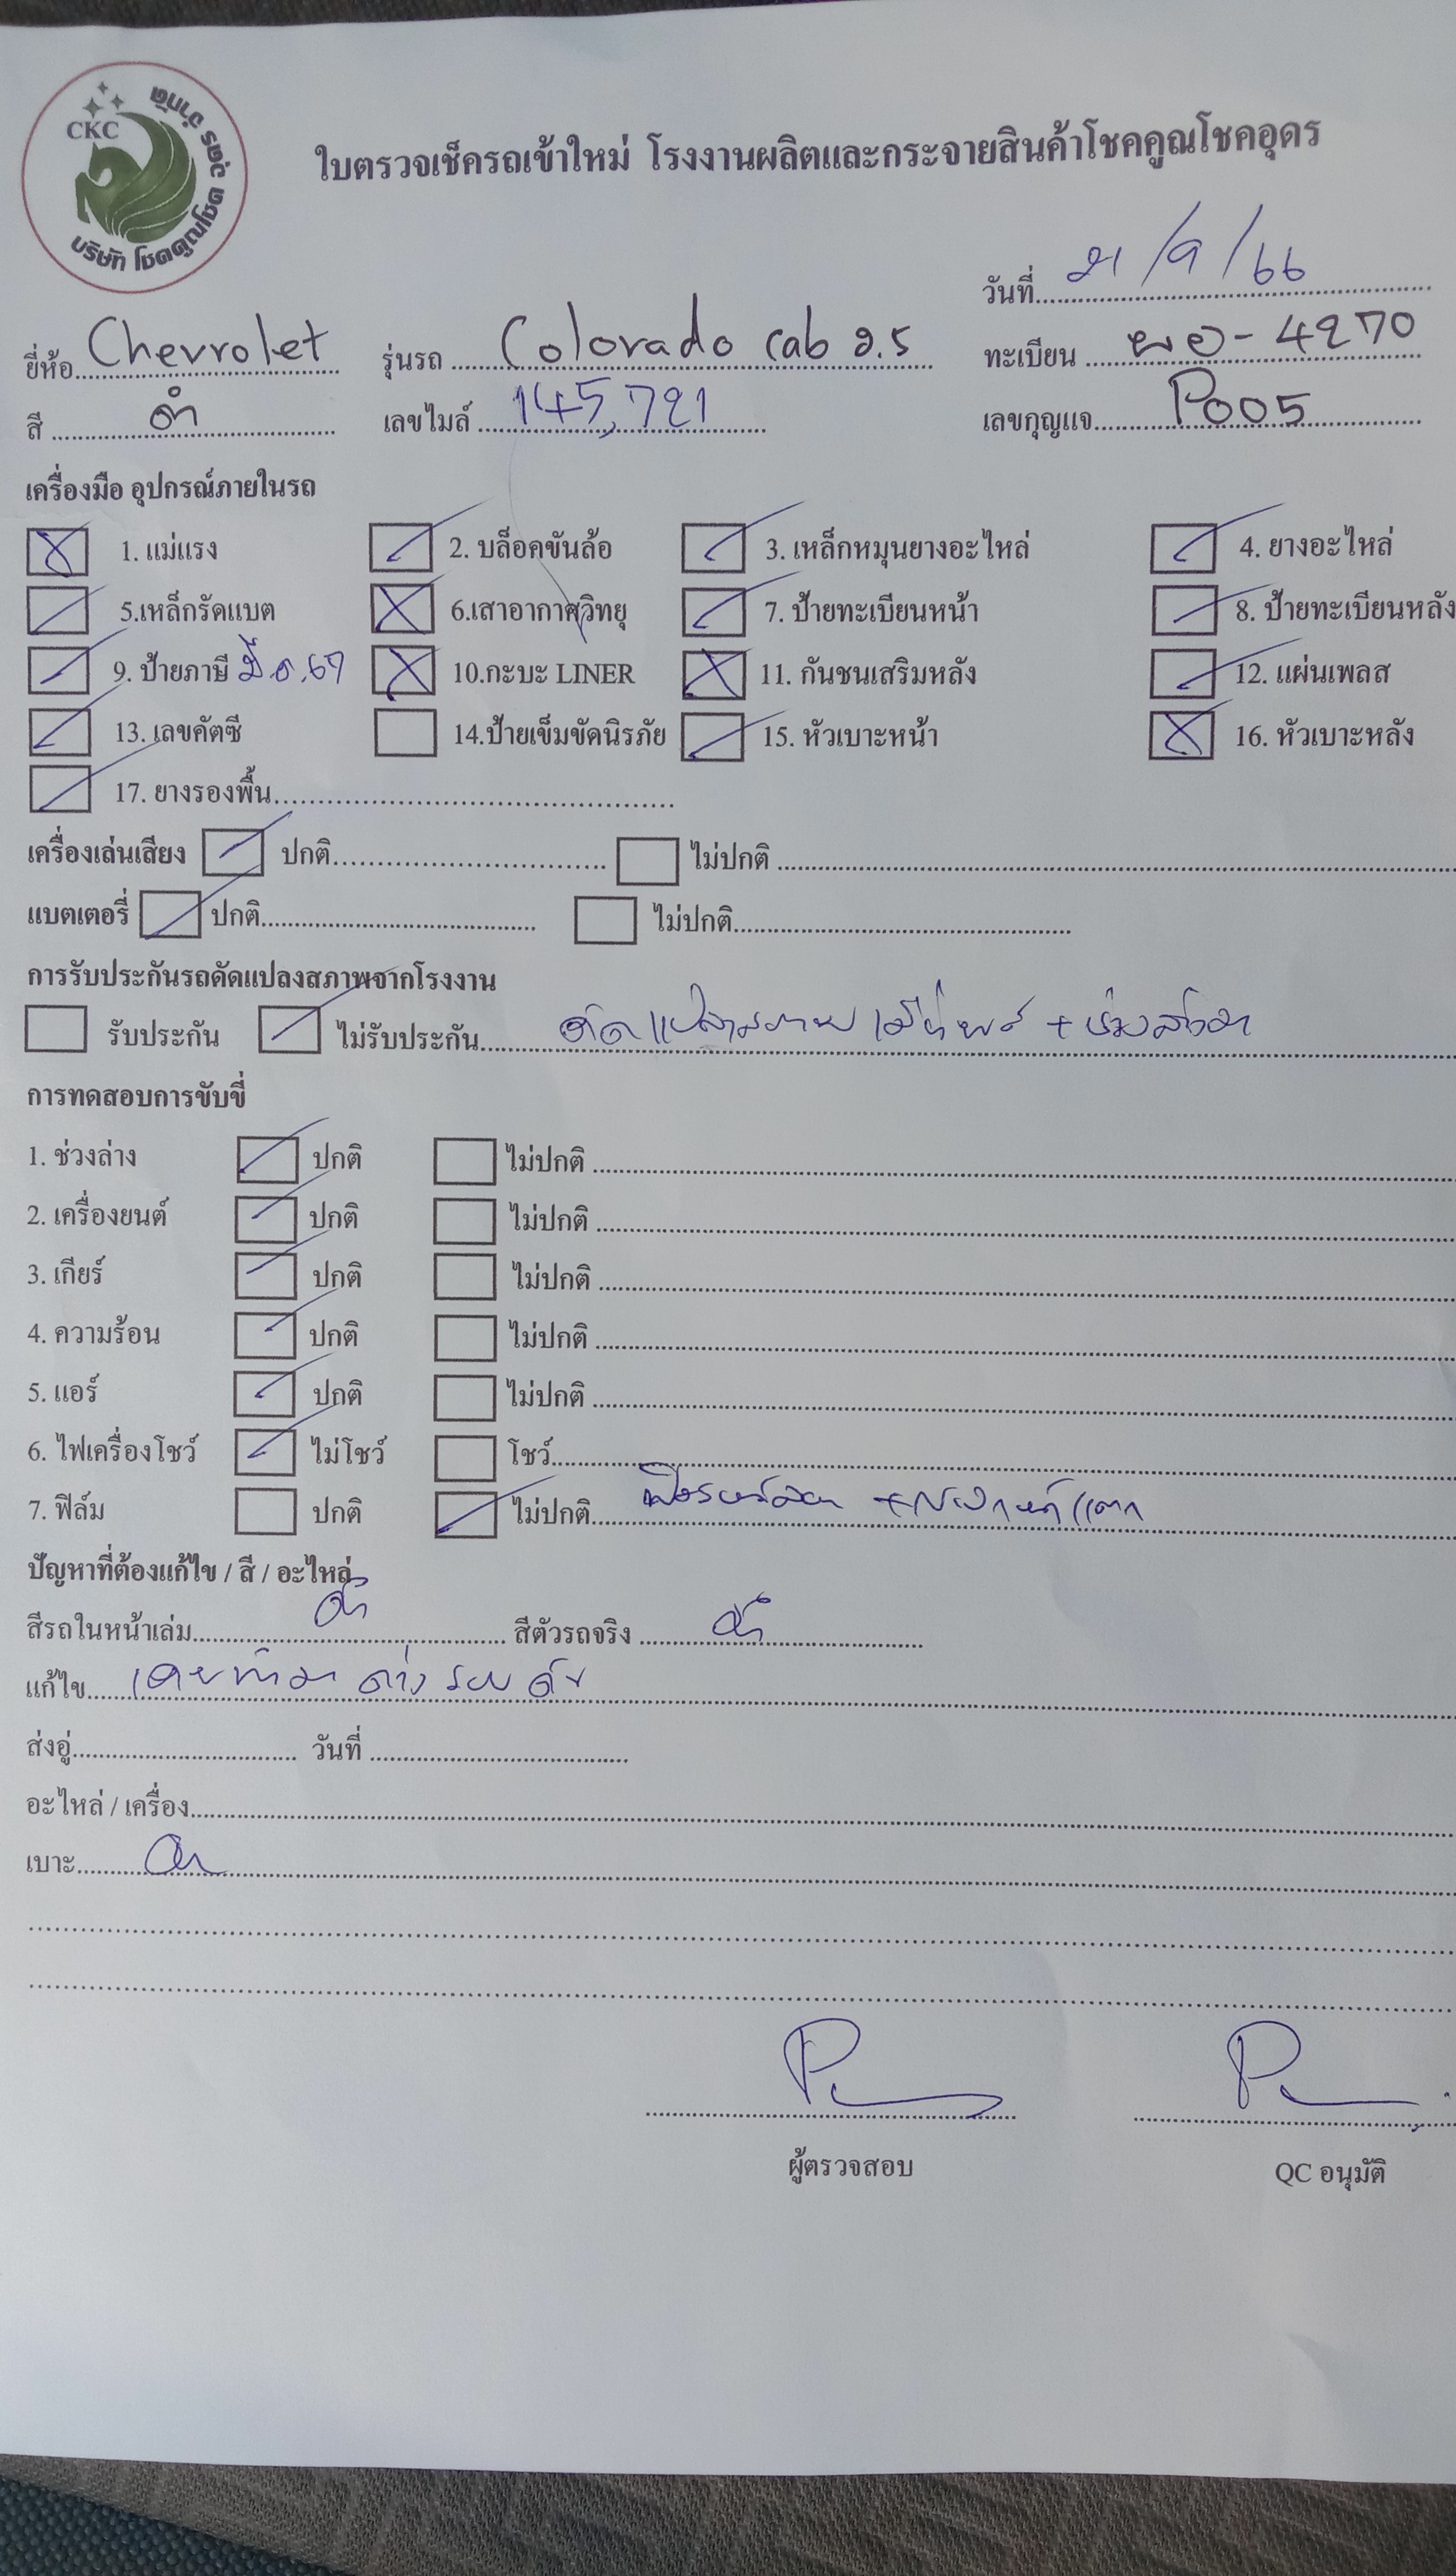 CKC
บริษัท โชคคูณโชค ๙ตร จำกัด
ใบตรวจเช็ครถเข้าใหม่ โรงงานผลิตและกระจายสินค้าโชคคูณโชคอุดร
วันที่ 21/9/66
ยี่ห้อ Chevrolet รุ่นรถ Colorado Cab 2.5 ทะเบียน ผอ-4270
สี ดำ เลขไมล์ 145,721 เลขกุญแจ P005
เครื่องมือ อุปกรณ์ภายในรถ
1. แม่แรง 2. บล็อคขันล้อ 3. เหล็กหมุนยางอะไหล่ 4. ยางอะไหล่
5.เหล็กรัดแบต 6.เสาอากาศวิทยุ 7. ป้ายทะเบียนหน้า 8. ป้ายทะเบียนหลัง
9. ป้ายภาษี มี.ค.67 10.กะบะ LINER 11. กันชนเสริมหลัง 12. แผ่นเพลส
13. เลขคัตซี 14.ป้ายเข็มขัดนิรภัย 15. หัวเบาะหน้า 16. หัวเบาะหลัง
17. ยางรองพื้น
เครื่องเล่นเสียง ปกติ ไม่ปกติ
แบตเตอรี่ ปกติ ไม่ปกติ
การรับประกันรถดัดแปลงสภาพจากโรงงาน
รับประกัน ไม่รับประกัน
การทดสอบการขับขี่
1. ช่วงล่าง ปกติ ไม่ปกติ
2. เครื่องยนต์ ปกติ ไม่ปกติ
3. เกียร์ ปกติ ไม่ปกติ
4. ความร้อน ปกติ ไม่ปกติ
5. แอร์ ปกติ ไม่ปกติ
6. ไฟเครื่องโชว์ ไม่โชว์ โชว์
7. ฟิล์ม ปกติ ไม่ปกติ
ปัญหาที่ต้องแก้ไข / สี / อะไหล่
สีรถในหน้าเล่ม ดำ สีตัวรถจริง ดำ
แก้ไข เคยทำมา
ส่งอู่ วันที่
อะไหล่ / เครื่อง
เบาะ
ผู้ตรวจสอบ QC อนุมัติ